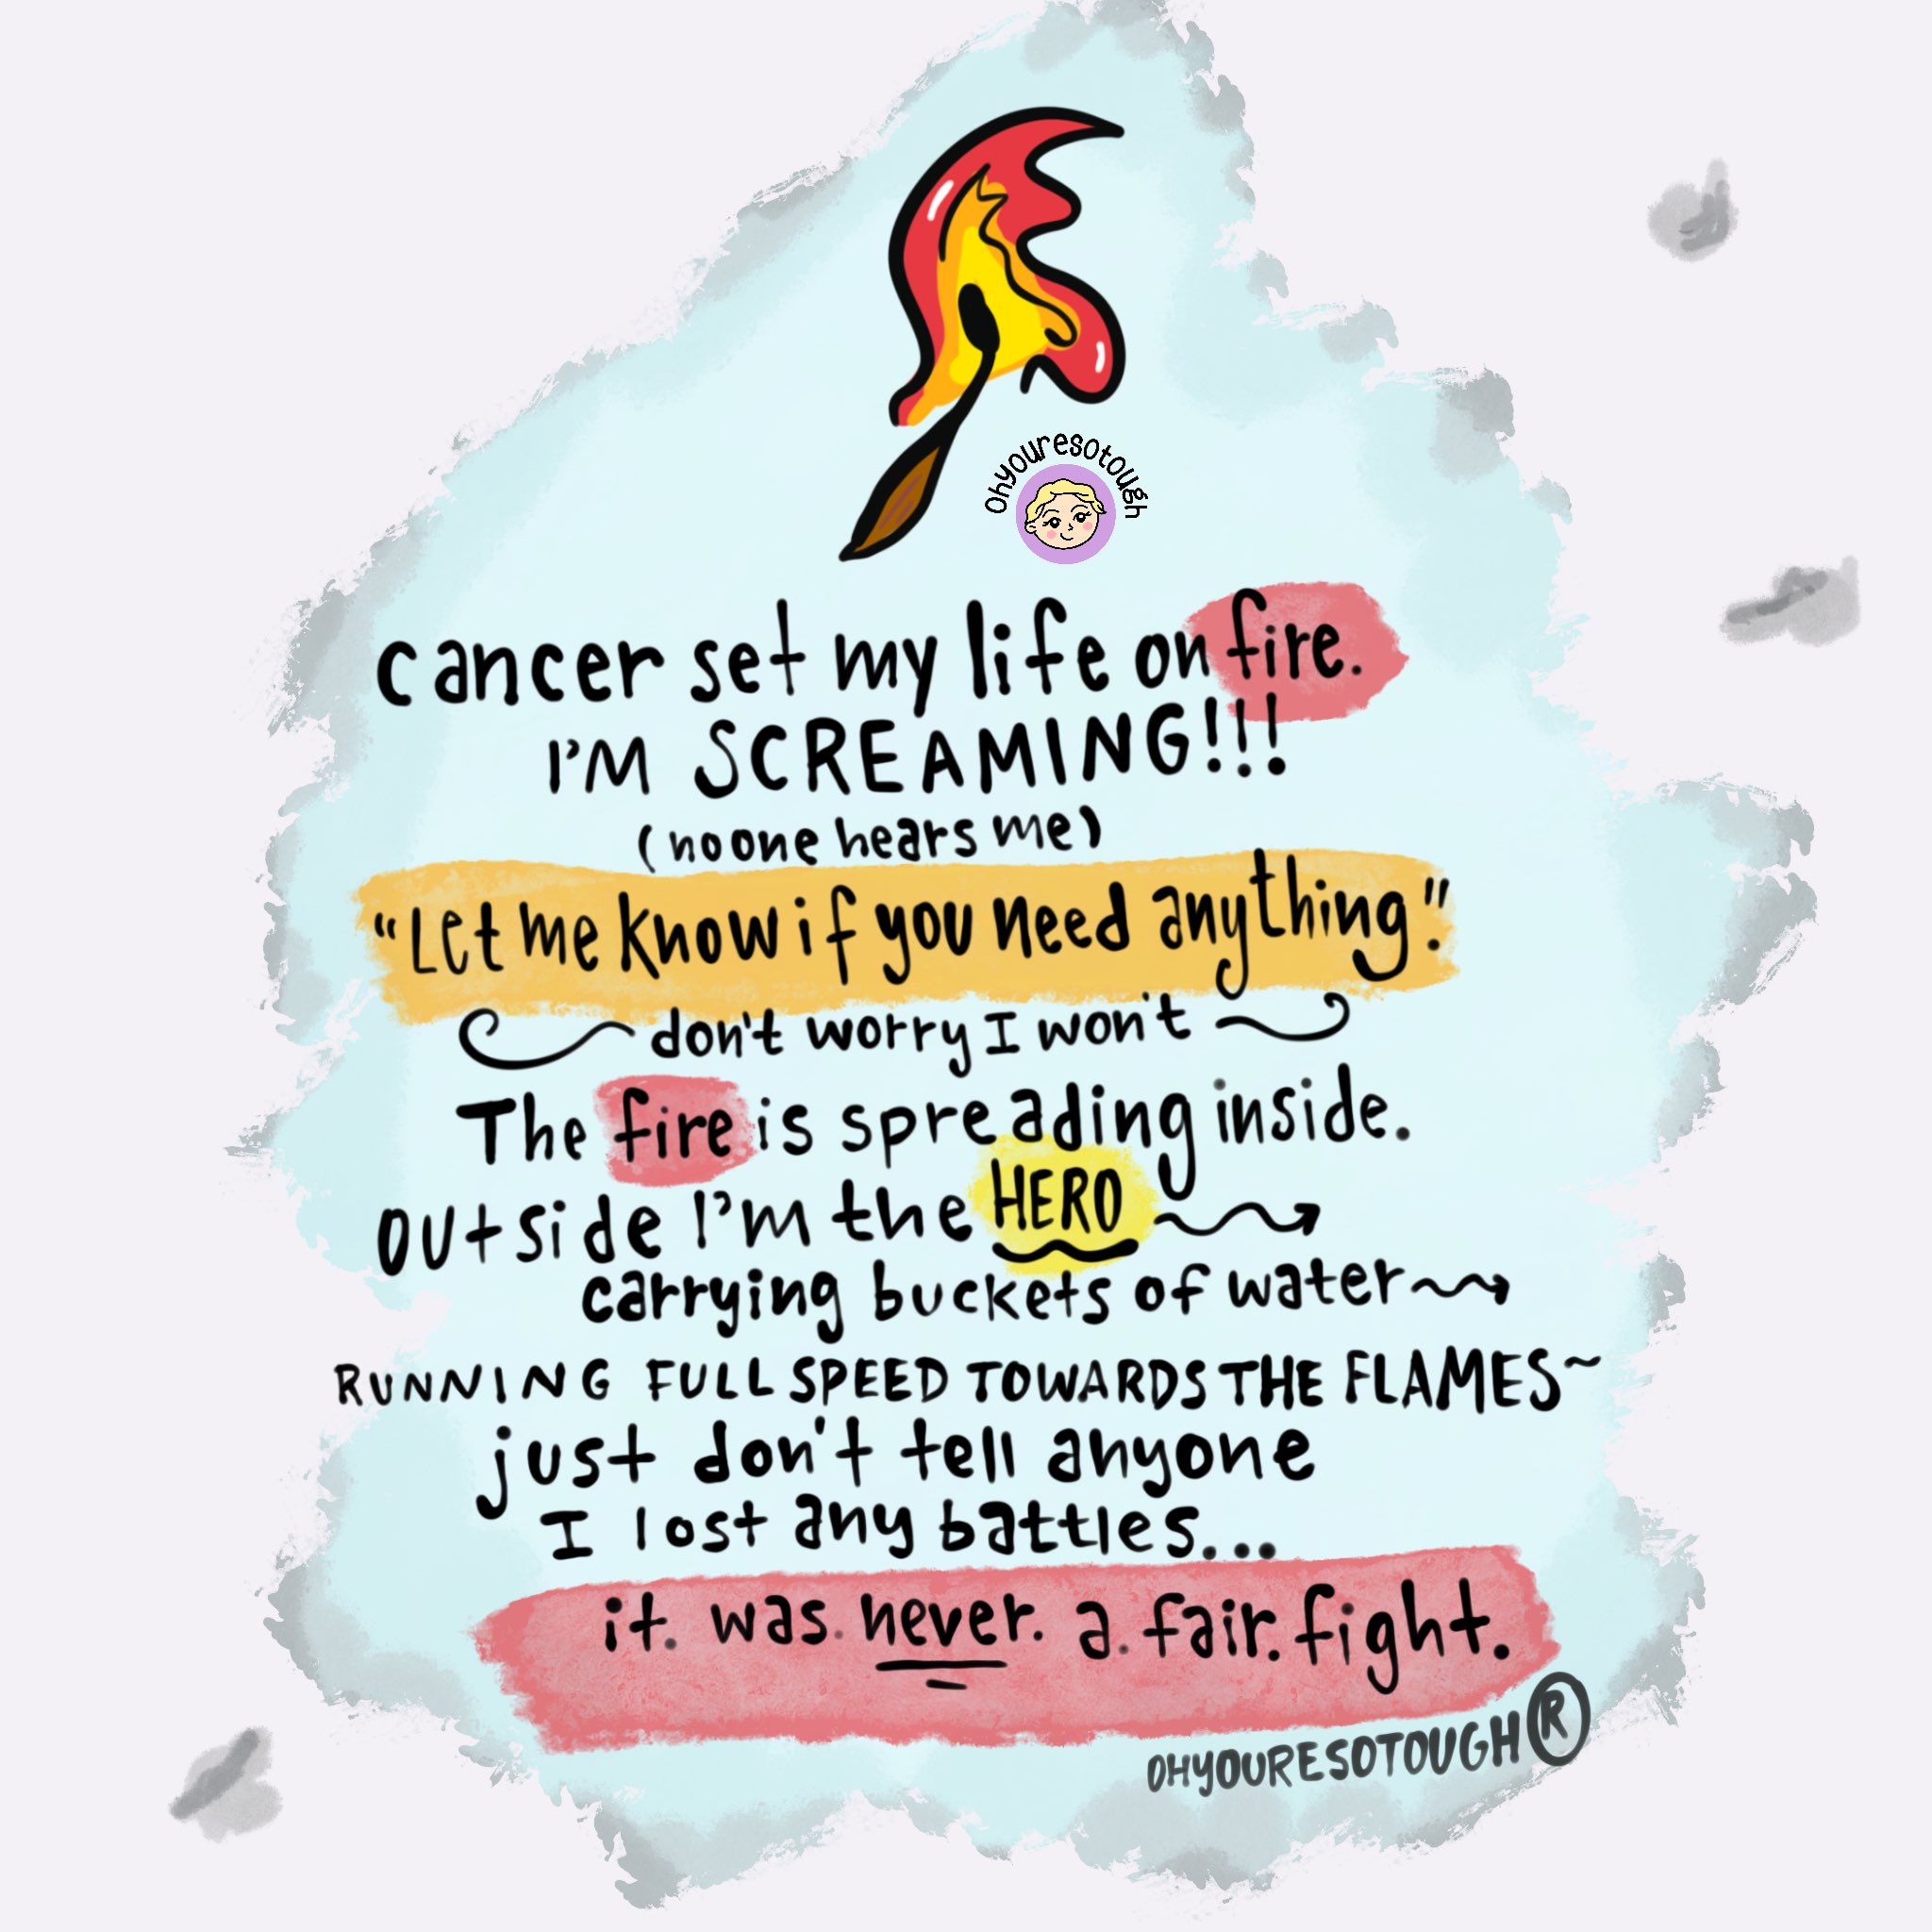 Ohyouresotough
cancer set my life on fire.
I'M SCREAMING!!!
(no one hears me)
"Let me know if you need anything."
don't worry I won't
The fire is spreading inside.
OUtside I'm the HERO
carrying buckets of water
RUNNING FULL SPEED TOWARDS THE FLAMES~
just don't tell anyone
I lost any battles...
it. was. never. a. fair. fight.
OHYOURESOTOUGH®